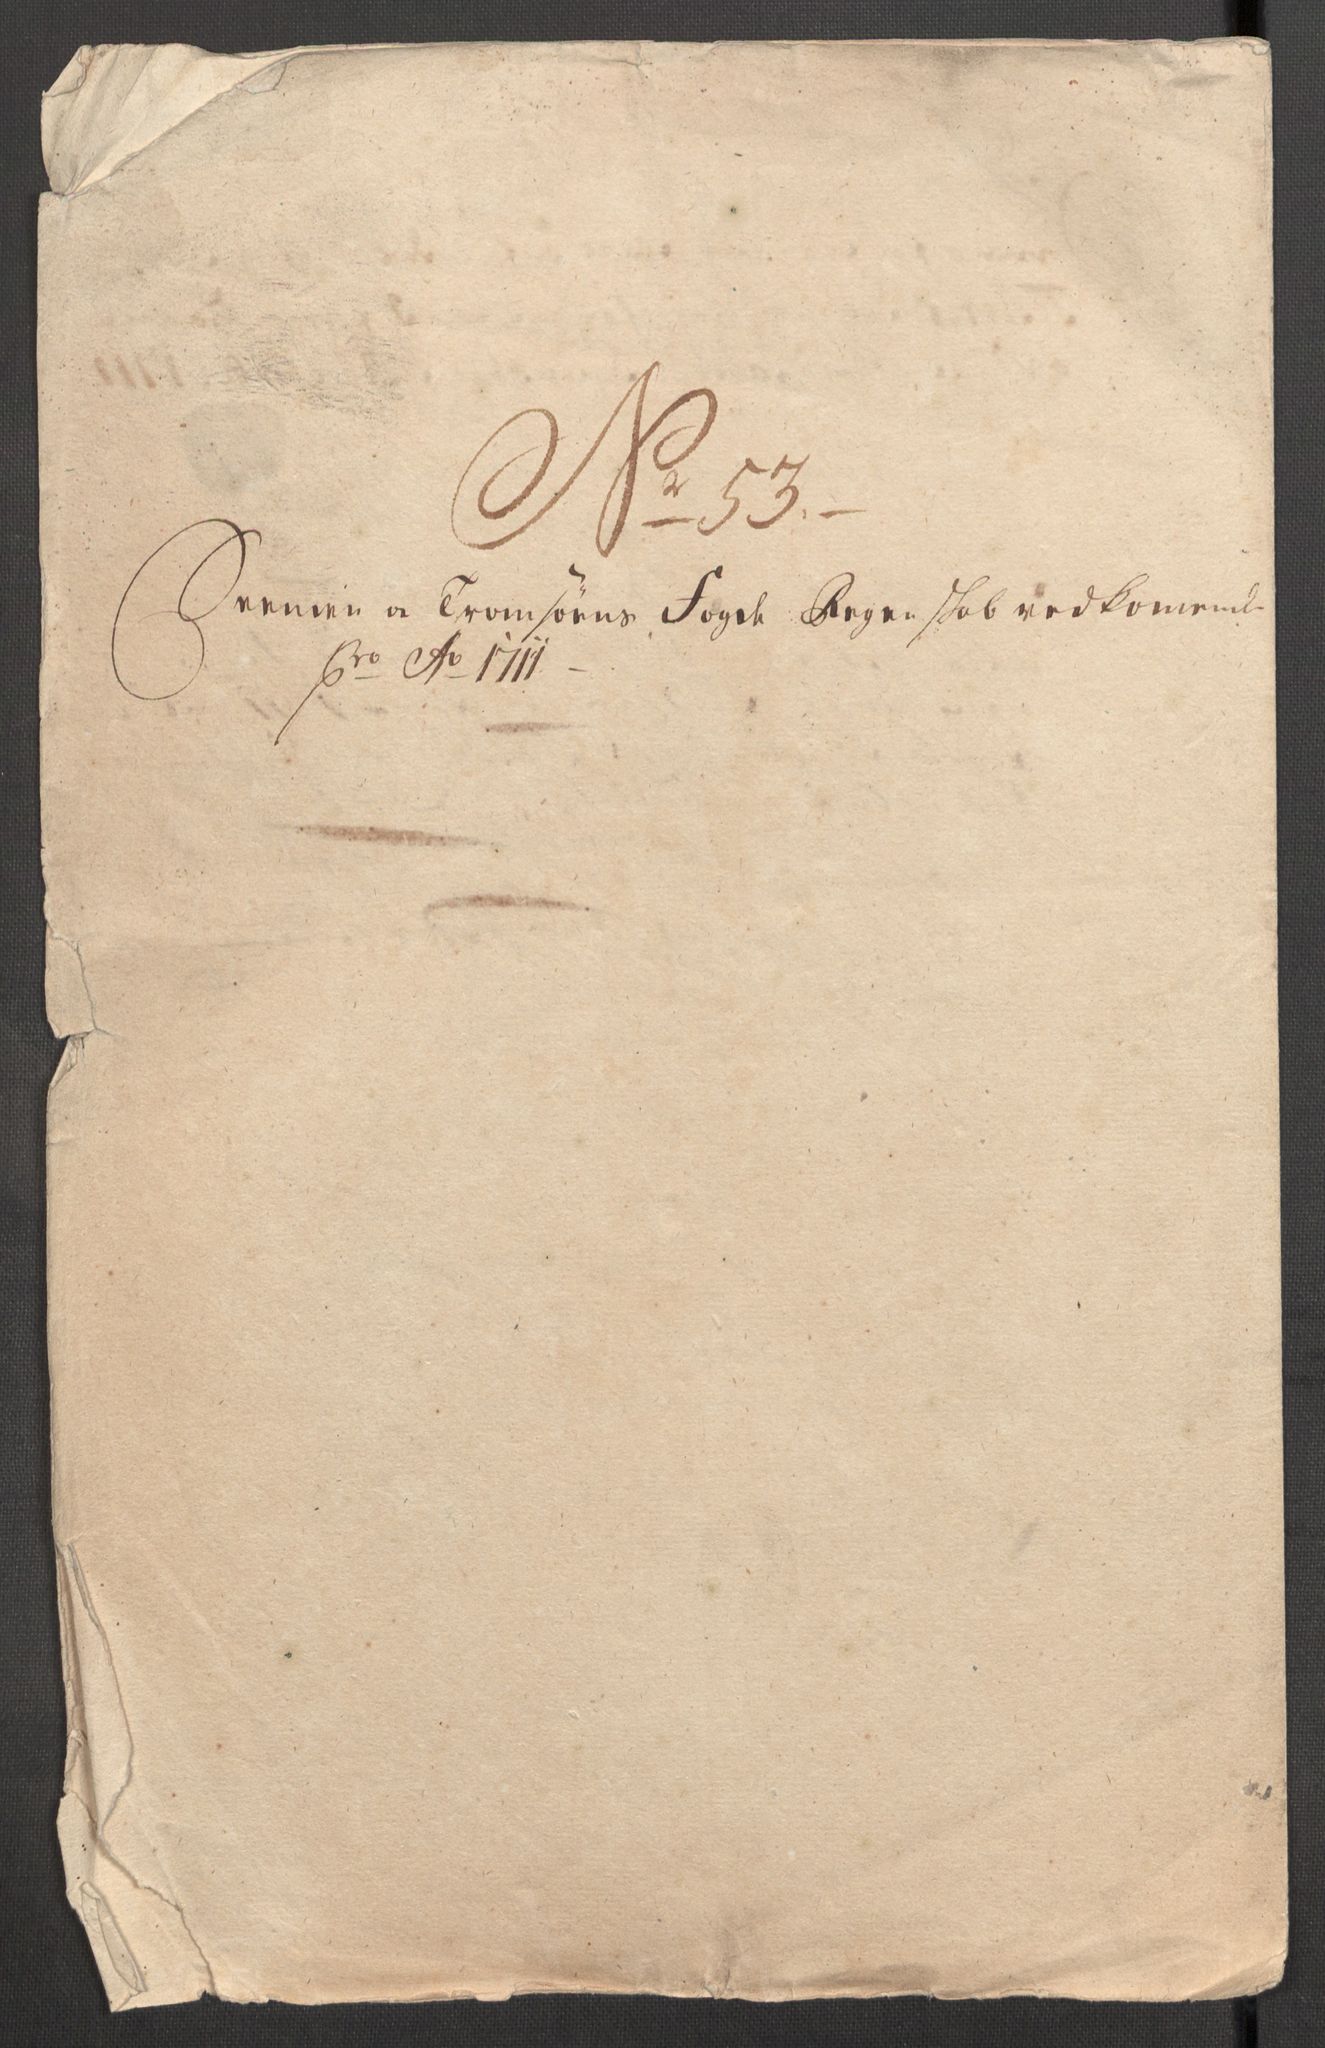 No 53.
Seenien oc Tromsöens Fogde Regenskab vedkomende
Pro Ao 1711